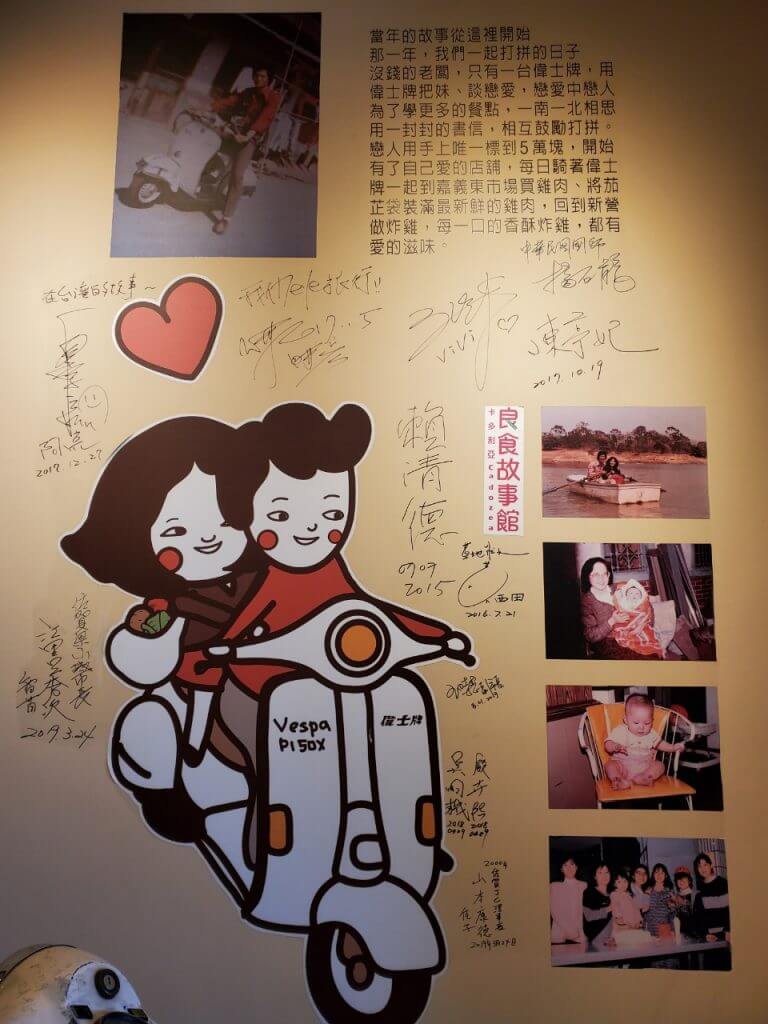 當年的故事從這裡開始
那一年，我們一起打拼的日子
沒錢的老闆，只有一台偉士牌，用
偉士牌把妹、談戀愛，戀愛中戀人
為了學更多的餐點，一南一北相思
用一封封的書信，相互鼓勵打拼。
戀人用手上唯一標到5萬塊，開始
有了自己愛的店舖，每日騎著偉士
牌一起到嘉義東市場買雞肉、將茄
芷袋裝滿最新鮮的雞肉，回到新營
做炸雞，每一口的香酥炸雞，都有
愛的滋味。
中華民國國師
楊石龍
在台灣的故事～
ViVi
陳亭妃
2017.10.19
阿亮
2017.12.27
賴清德
0909
2015
良食故事館
卡多利亞Cadozea
2016.7.21
2019.3.24
Vespa
P150X
偉士牌
2018
0409
2018
0409
山本康德